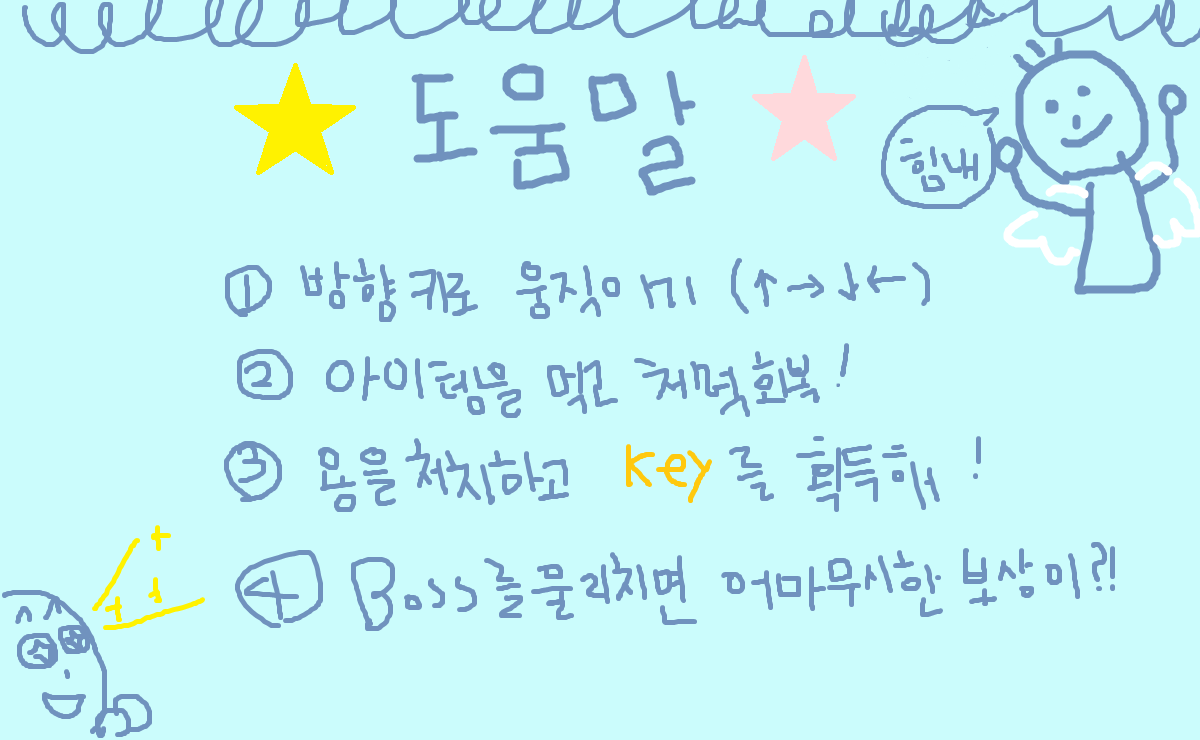 도움말
힘내
① 방향키로 움직이기 (↑→↓←)
② 아이템을 먹고 체력회복!
③ 용을처치하고 key를 획득해!
④ Boss를물리치면 어마무시한 보상이?!